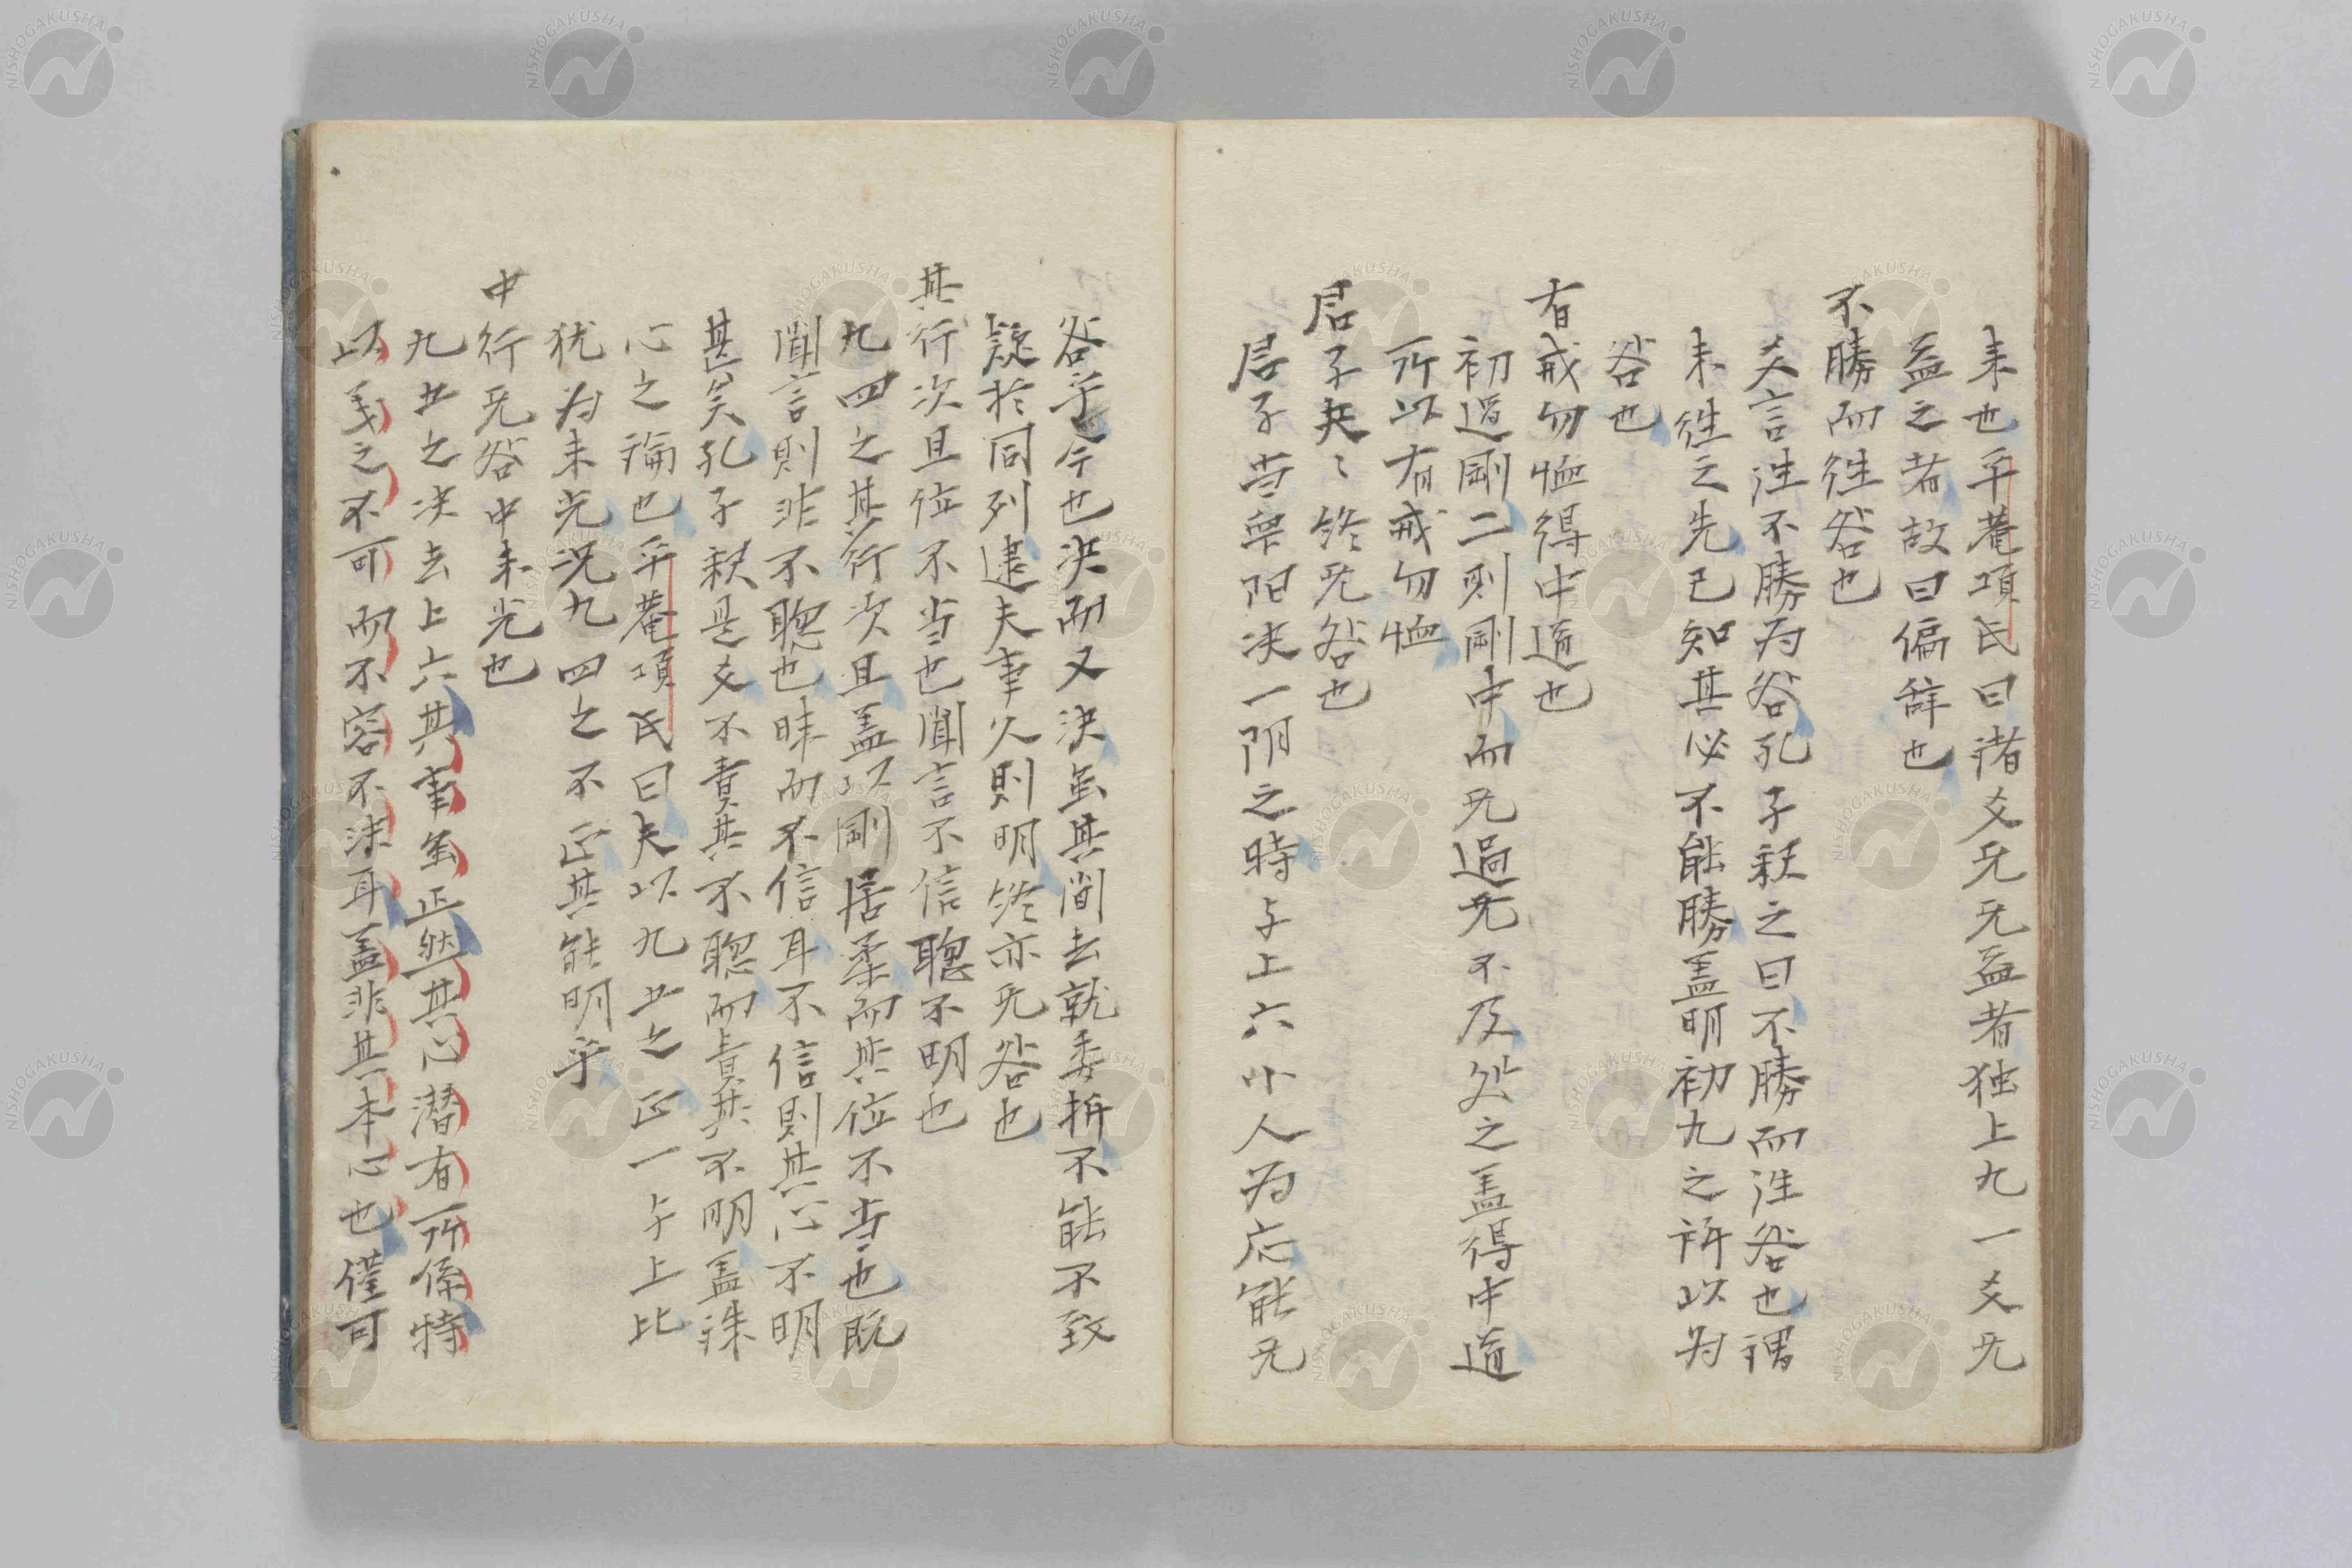 来也平菴項氏曰諸爻无无益者独上九一爻无
益之者故曰偏辞也
不勝而往咎也
爻言往不勝为咎孔子釈之曰不勝而往咎也謂
未往之先已知其必不能勝盖明初九之所以为
咎也
有戒勿恤得中道也
初過剛二則剛中而无過无不及処之盖得中道
所以有戒勿恤
君子夬〻終无咎也
君子当衆阳决一阴之時与上六小人为応能无
咎乎今也决而又决虽其間去就委折不能不致
疑於同列逮夫事久則明終亦无咎也
其行次且位不当也聞言不信聰不明也
九四之其行次且盖以剛居柔而其位不当也既
聞言則非不聰也昧而不信耳不信則其心不明
甚矣孔子釈是爻不責其不聰而責其不明盖誅
心之論也平菴項氏曰夫以九五之正一与上比
犹为未光况九四之不正其能明乎
中行无咎中未光也
九五之决去上六其事虽正然其心潜有所係特
以義之不可而不容不决耳盖非其本心也僅可